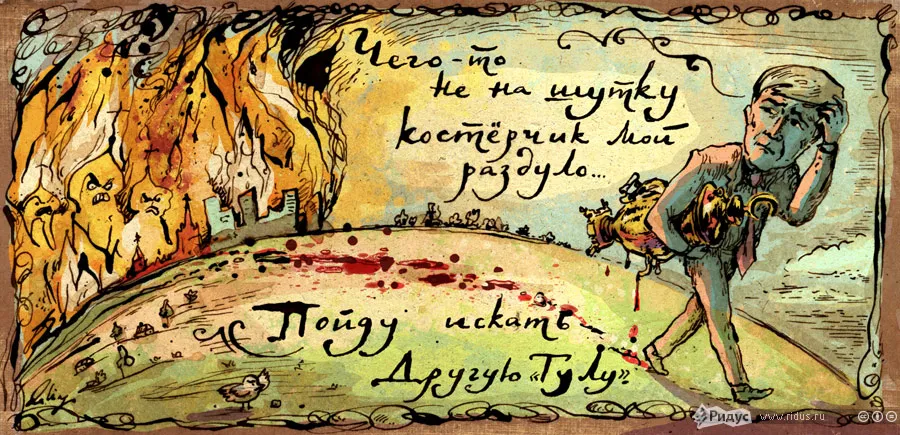 Чего-то
не на шутку
костёрчик мой
раздуло...
Пойду искать
Другую "Тулу"
Ридус www.ridus.ru